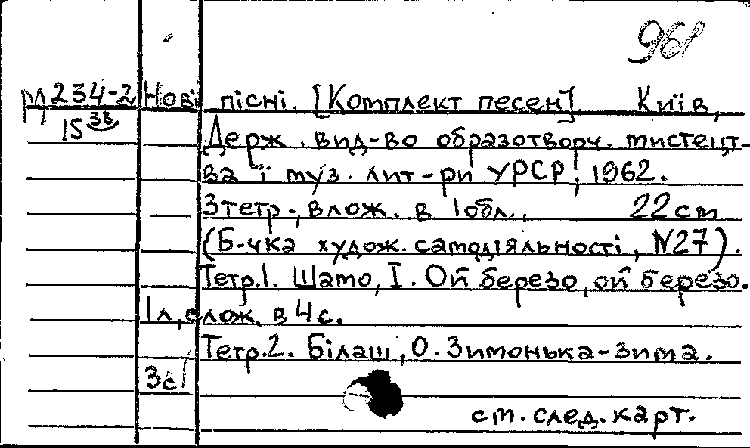 968
М 234-2 Нові пісні. [Комплект песен]. Київ,
15 38
Держ. вид-во образотворч. тистецт-
ва і туз. лит-ри УРСР, 1962.
3 тетр., влож. в 1 обл., 22 ст
(Б-чка худож. самодіяльності, №27).
Тетр.1. Шамо, І. Ой березо, ой березо.
1 л, слож. в 4 с.
Тетр.2. Білаш, О. Зимонька-зима.
3с
ст. след. карт.